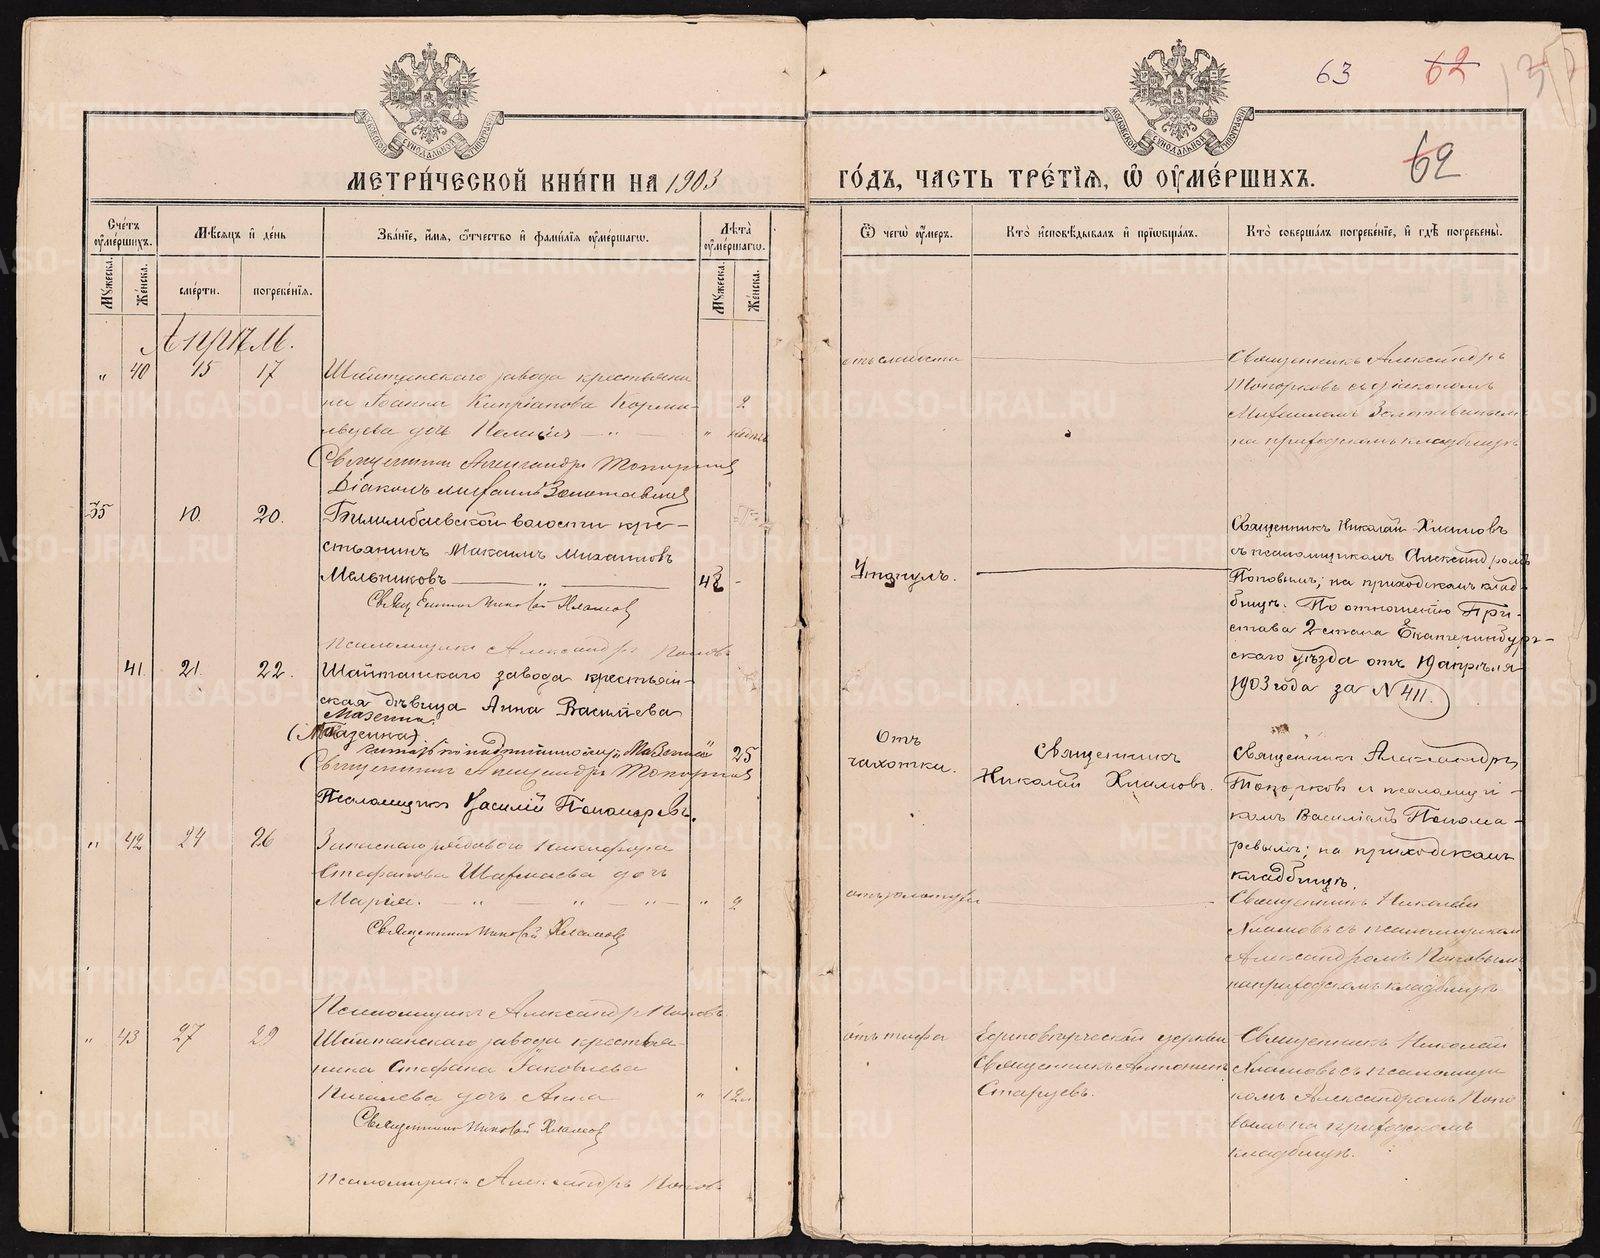 63 62
62
МОСКОВСКОЙ СѴНОДАЛЬНОЙ ТИПОГРАФІИ
МОСКОВСКОЙ СѴНОДАЛЬНОЙ ТИПОГРАФІИ
МЕТРИ́ЧЕСКОЙ КНИ́ГИ НА 1903
ГО́ДЪ, ЧАСТЬ ТРЕ́ТІѦ, Ѽ ОУ҆МЕ́РШИХЪ.
Сче́тъ оу҆ме́ршихъ.
Мꙋжеска.
Же́нска.
Мѣ́сѧцъ и҆ де́нь
сме́рти.
погребе́нїѧ.
Зва́нїе, и҆́мѧ, ѻ҆́тчество и҆ фами́лїѧ оу҆ме́ршагѡ.
Лѣ́та оу҆ме́ршагѡ.
Мꙋжеска.
Же́нска.
Ѿ чегѡ̀ оу҆́меръ.
Кто̀ и҆сповѣ́дывалъ и҆ прїѡбща́лъ.
Кто̀ соверша́лъ погребе́нїе, и҆ гдѣ̀ погребены̀.
Апрѣль.
" 40 15 17
Шайтанскаго завода крестьяни
на Іоанна Кипріанова Корми-
льцева дочь — " —
" 2 недѣль
Священникъ Александръ Топорковъ
Діаконъ Михаилъ Золотавинъ
отъ слабости
Священникъ Александръ
Топорковъ съ діакономъ
Михаиломъ Золотавинымъ
на приходскомъ кладбищѣ
35 10. 20.
Билимбаевской волости кре-
стьянинъ Максимъ Михаиловъ
Мельниковъ — " —
42 -
Священникъ Николай Хламовъ
Псаломщикъ Александръ Поповъ
Утонулъ.
Священникъ Николай Хламовъ
съ псаломщикомъ Александромъ
Поповымъ; на приходскомъ клад-
бищѣ. По отношенію При-
става 2 стана Екатеринбург-
скаго уѣзда отъ 19 апрѣля
1903 года за № 411.
41. 21. 22.
Шайтанскаго завода крестьян-
ская дѣвица Анна Васильева
Мазенина.
(Мазенка).
25
читать по надписанному Мазенина
Священникъ Александръ Топорковъ
Псаломщикъ Василій Пономаревъ.
Отъ
чахотки.
Священникъ
Николай Хламовъ.
Священникъ Александръ
Топорковъ и псаломщи-
комъ Василіемъ Понома-
ревымъ; на приходскомъ
кладбищѣ.
" 42 24 26
Запаснаго рядового Никифора
Стефанова Шармаева дочь
Марія. — " — " — " — " 2
Священникъ Николай Хламовъ
Псаломщикъ Александръ Поповъ.
Священникъ Николай
Хламовъ съ псаломщикомъ
Александромъ Поповымъ
на приходскомъ кладбищѣ
" 43 27 29
Шайтанскаго завода крестья-
нина Стефана Яковлева
Пигалева дочь Анна
" 12
Священникъ Николай Хламовъ
Псаломщикъ Александръ Поповъ
отъ тифа
Единовѣрческой церкви
Священникъ Антонинъ
Старцевъ.
Священникъ Николай
Хламовъ съ псаломщи
комъ Александромъ Попо
вымъ на приходскомъ
кладбищѣ.
METRIKI.GASO-URAL.RU